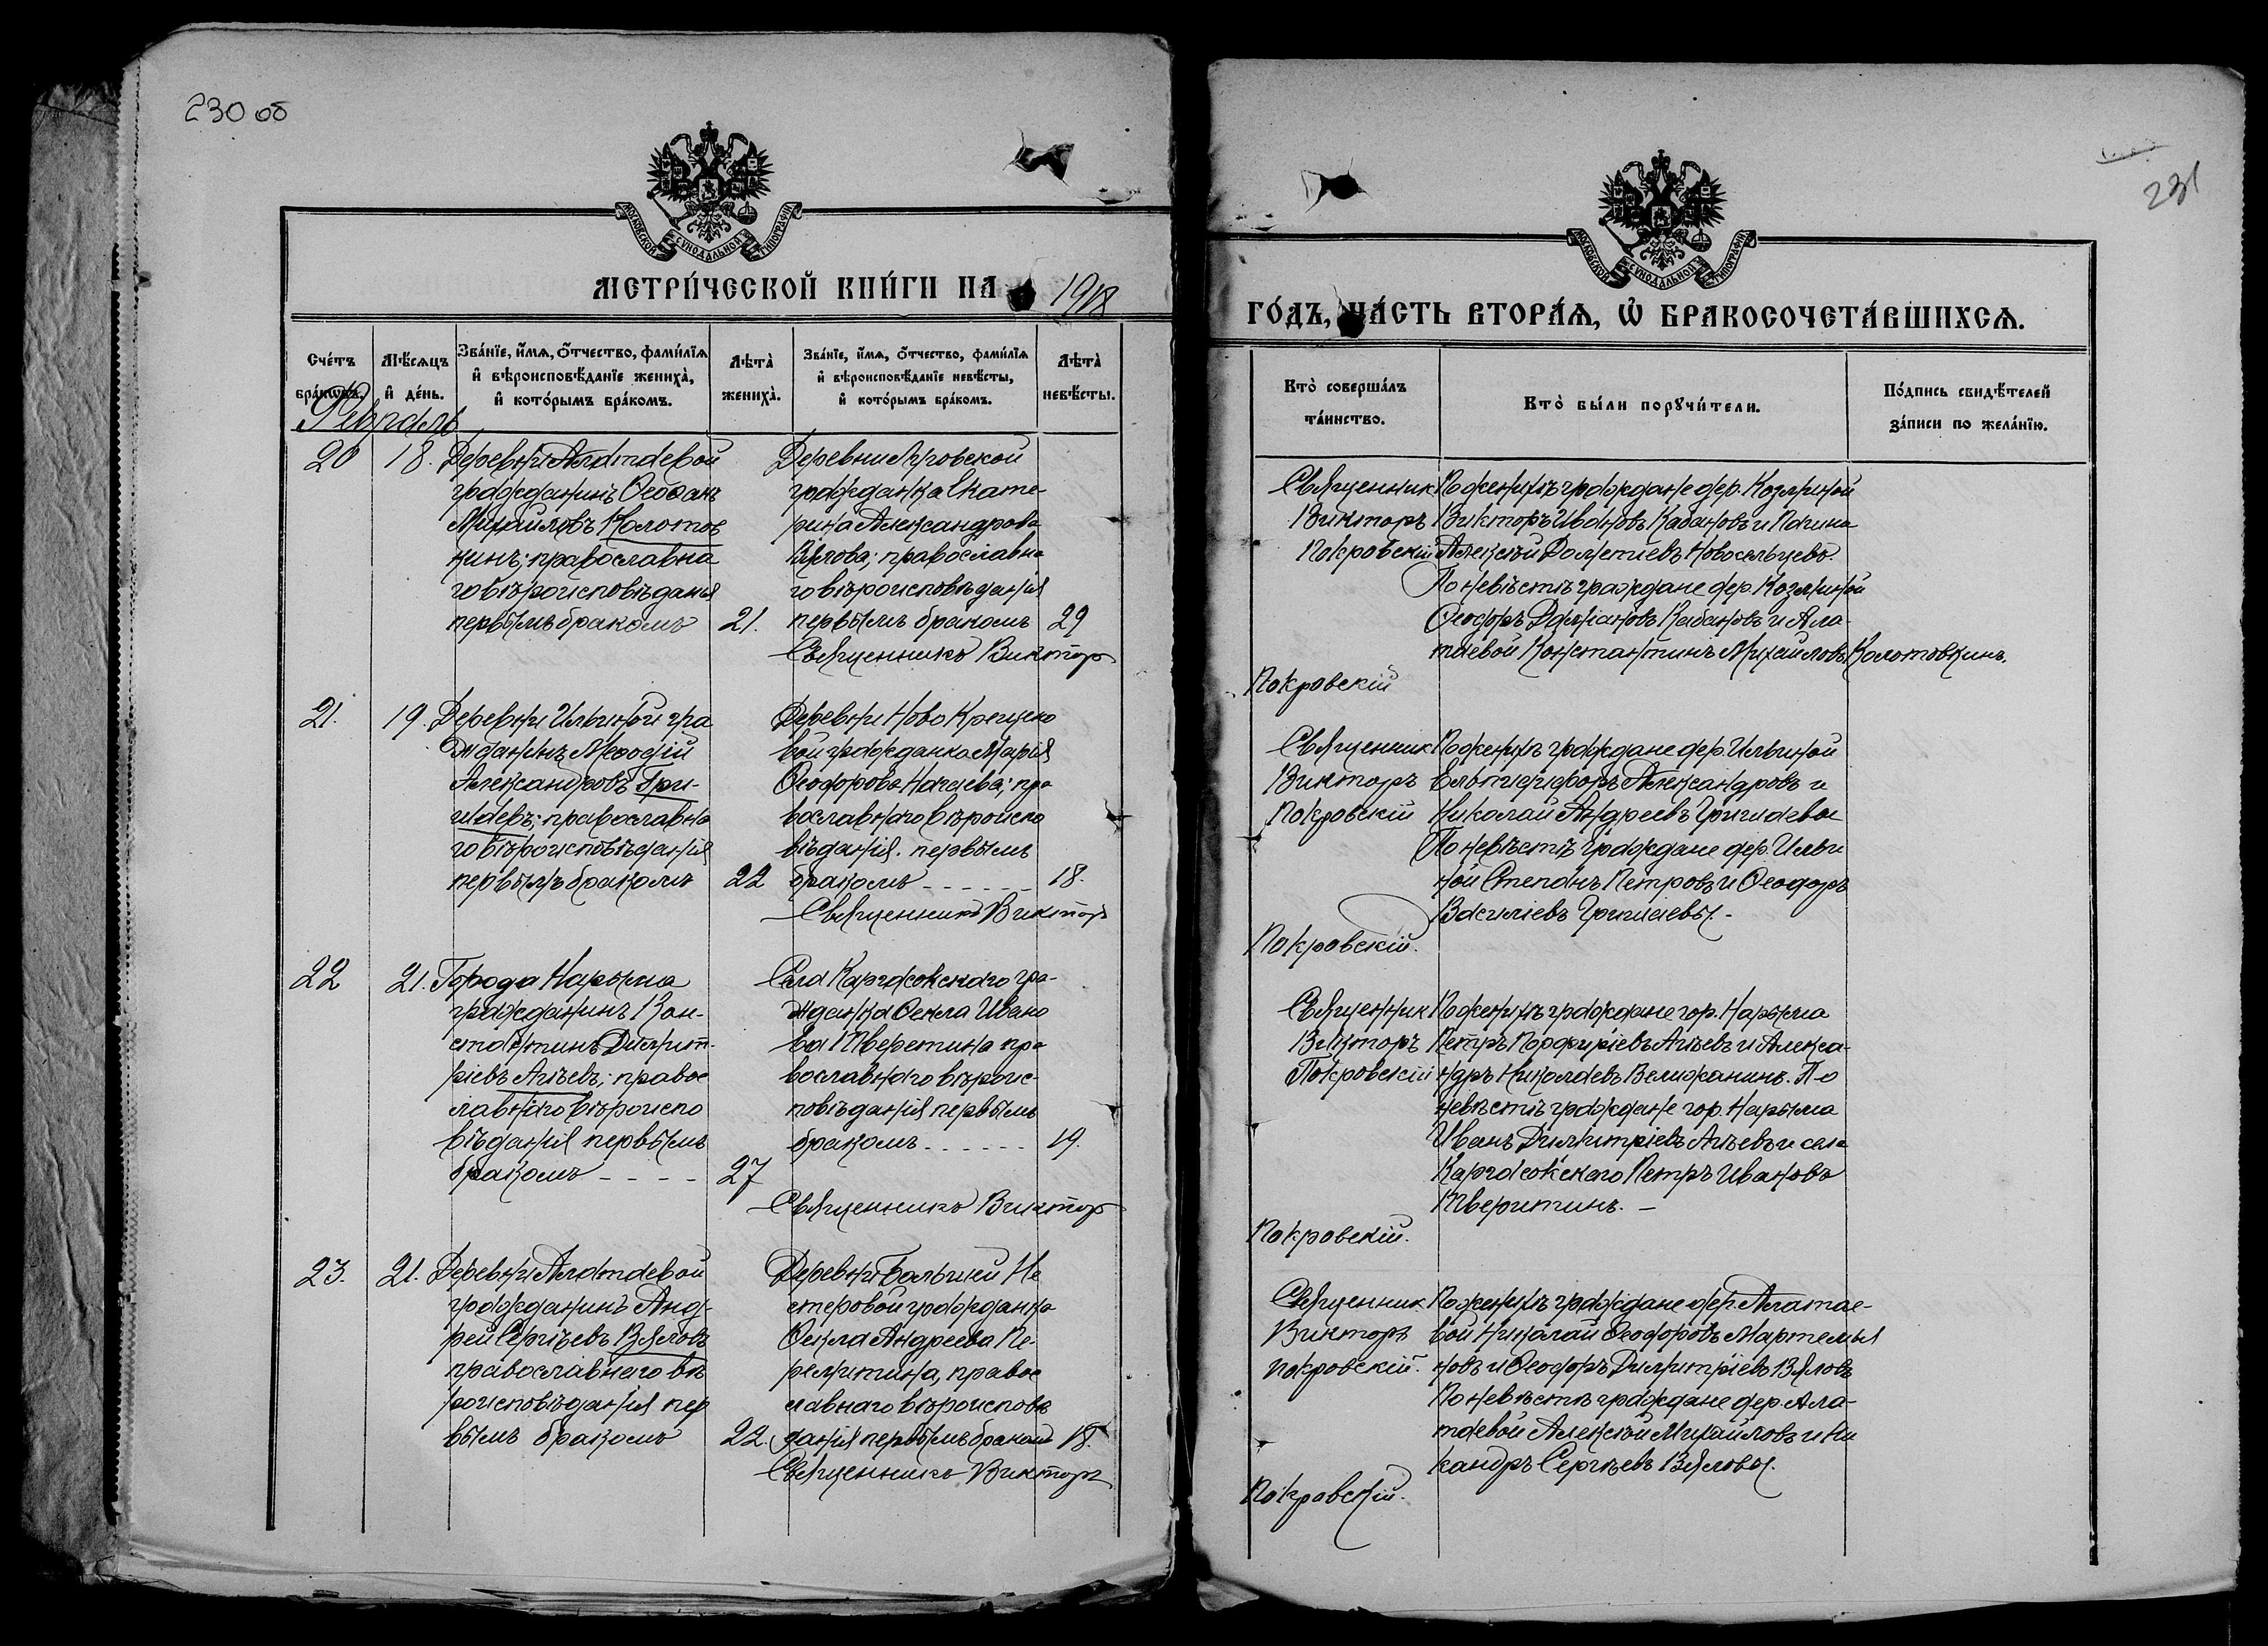 230 об
МОСКОВСКОЙ СѴНОДАЛЬНОЙ ТИПОГРАФІИ
МЕТРИ́ЧЕСКОЙ КНИ́ГИ НА 1918
Сче́тъ бра́кѡвъ.
Мѣ́сѧцъ и҆ де́нь.
Зва́нїе, и҆́мѧ, ѻ҆́тчество, фами́лїѧ
и҆ вѣроисповѣ́данїе жениха̀,
и҆ кото́рымъ бра́комъ.
Лѣта̀ жениха̀.
Зва́нїе, и҆́мѧ, ѻ҆́тчество, фами́лїѧ
и҆ вѣроисповѣ́данїе невѣ́сты,
и҆ кото́рымъ бра́комъ.
Лѣта̀ невѣ́сты.
Февраль
20
18.
Деревни Алатаевой
гражданинъ Ѳеофанъ
Михайловъ Колотов
кинъ; православна
го вѣроисповѣданія
первымъ бракомъ
21.
Деревни
гражданка Екате-
рина Александрова
Вялова; православна
го вѣроисповѣданія
первымъ бракомъ
29
Священникъ Виктор
21.
19.
Деревни Ильиной гра
жданинъ Меѳодій
Александровъ Гри-
шаевъ; православна
го вѣроисповѣданія
первымъ бракомъ
22
Деревни Ново Крещено
вой гражданка Марія
Ѳеодорова Нагаева; пра
вославнаго вѣроиспо
вѣданія. первымъ
бракомъ
18.
Священникъ Виктор
22
21.
Города Нарыма
гражданинъ Кон-
стантинъ Димит-
ріевъ Агѣевъ; правос
лавнаго вѣроиспо
вѣданія первымъ
бракомъ
27
Села Каргасокскаго гра-
жданка Ѳекла Ивано
ва Тверетина пра
вославнаго вѣроис-
повѣданія первымъ
бракомъ
19.
Священникъ Виктор
23.
21.
Деревни Алатаевой
гражданинъ Анд-
рей Сергѣевъ Вяловъ
православнаго вѣ
роисповѣданія пер
вымъ бракомъ
22.
Деревни Большей Не
стеровой гражданка
Ѳекла Андреева Пе-
ремитина, правос
лавнаго вѣроисповѣ
данія первымъ бракомъ
18.
Священникъ Викторъ
231
МОСКОВСКОЙ СѴНОДАЛЬНОЙ ТИПОГРАФІИ
ГО́ДЪ, ЧА́СТЬ ВТОРА́Ѧ, Ѡ҆ БРАКОСОЧЕТА́ВШИХСѦ.
Кто̀ соверша́лъ
та́инство.
Кто̀ бы́ли порꙋчи́тели.
По́дпись свидѣ́телей
за́писи по жела́нїю.
Священник
Викторъ
Покровскій
По женихѣ граждане дер. Козминой
Викторъ Ивановъ Кабановъ и
Алексѣй Дометіевъ Новосельцевъ.
По невѣстѣ граждане дер. Козминой
Ѳеодоръ Даміановъ Кабановъ и Ала-
таевой Константинъ Михайловъ Колотовкинъ.
Покровскій
Священник
Викторъ
Покровскій
По женихѣ граждане дер. Ильиной
Елпидифоръ Александровъ и
Николай Андреевъ Гришаевы
По невѣстѣ граждане дер. Ильи
ной Степанъ Петровъ и Ѳеодоръ
Василіевъ Гришаевы.
Покровскій.
Священник
Викторъ
Покровскій
По женихѣ граждане гор. Нарыма
Петръ Порфиріевъ Агѣевъ и Алекса-
ндръ Николаевъ Велижанинъ. По
невѣстѣ граждане гор. Нарыма
Иванъ Димитріевъ Агѣевъ и села
Каргасокскаго Петръ Ивановъ
Тверитинъ. –
Покровскій.
Священник
Викторъ
Покровскій.
По женихѣ граждане дер. Алатае-
вой Николай Ѳеодоровъ Мартемья
новъ и Ѳеодоръ Димитріевъ Вяловъ
По невѣстѣ граждане дер. Ала-
таевой Алексѣй Михайловъ и Ни
кандръ Сергѣевъ Вяловы.
Покровскій.